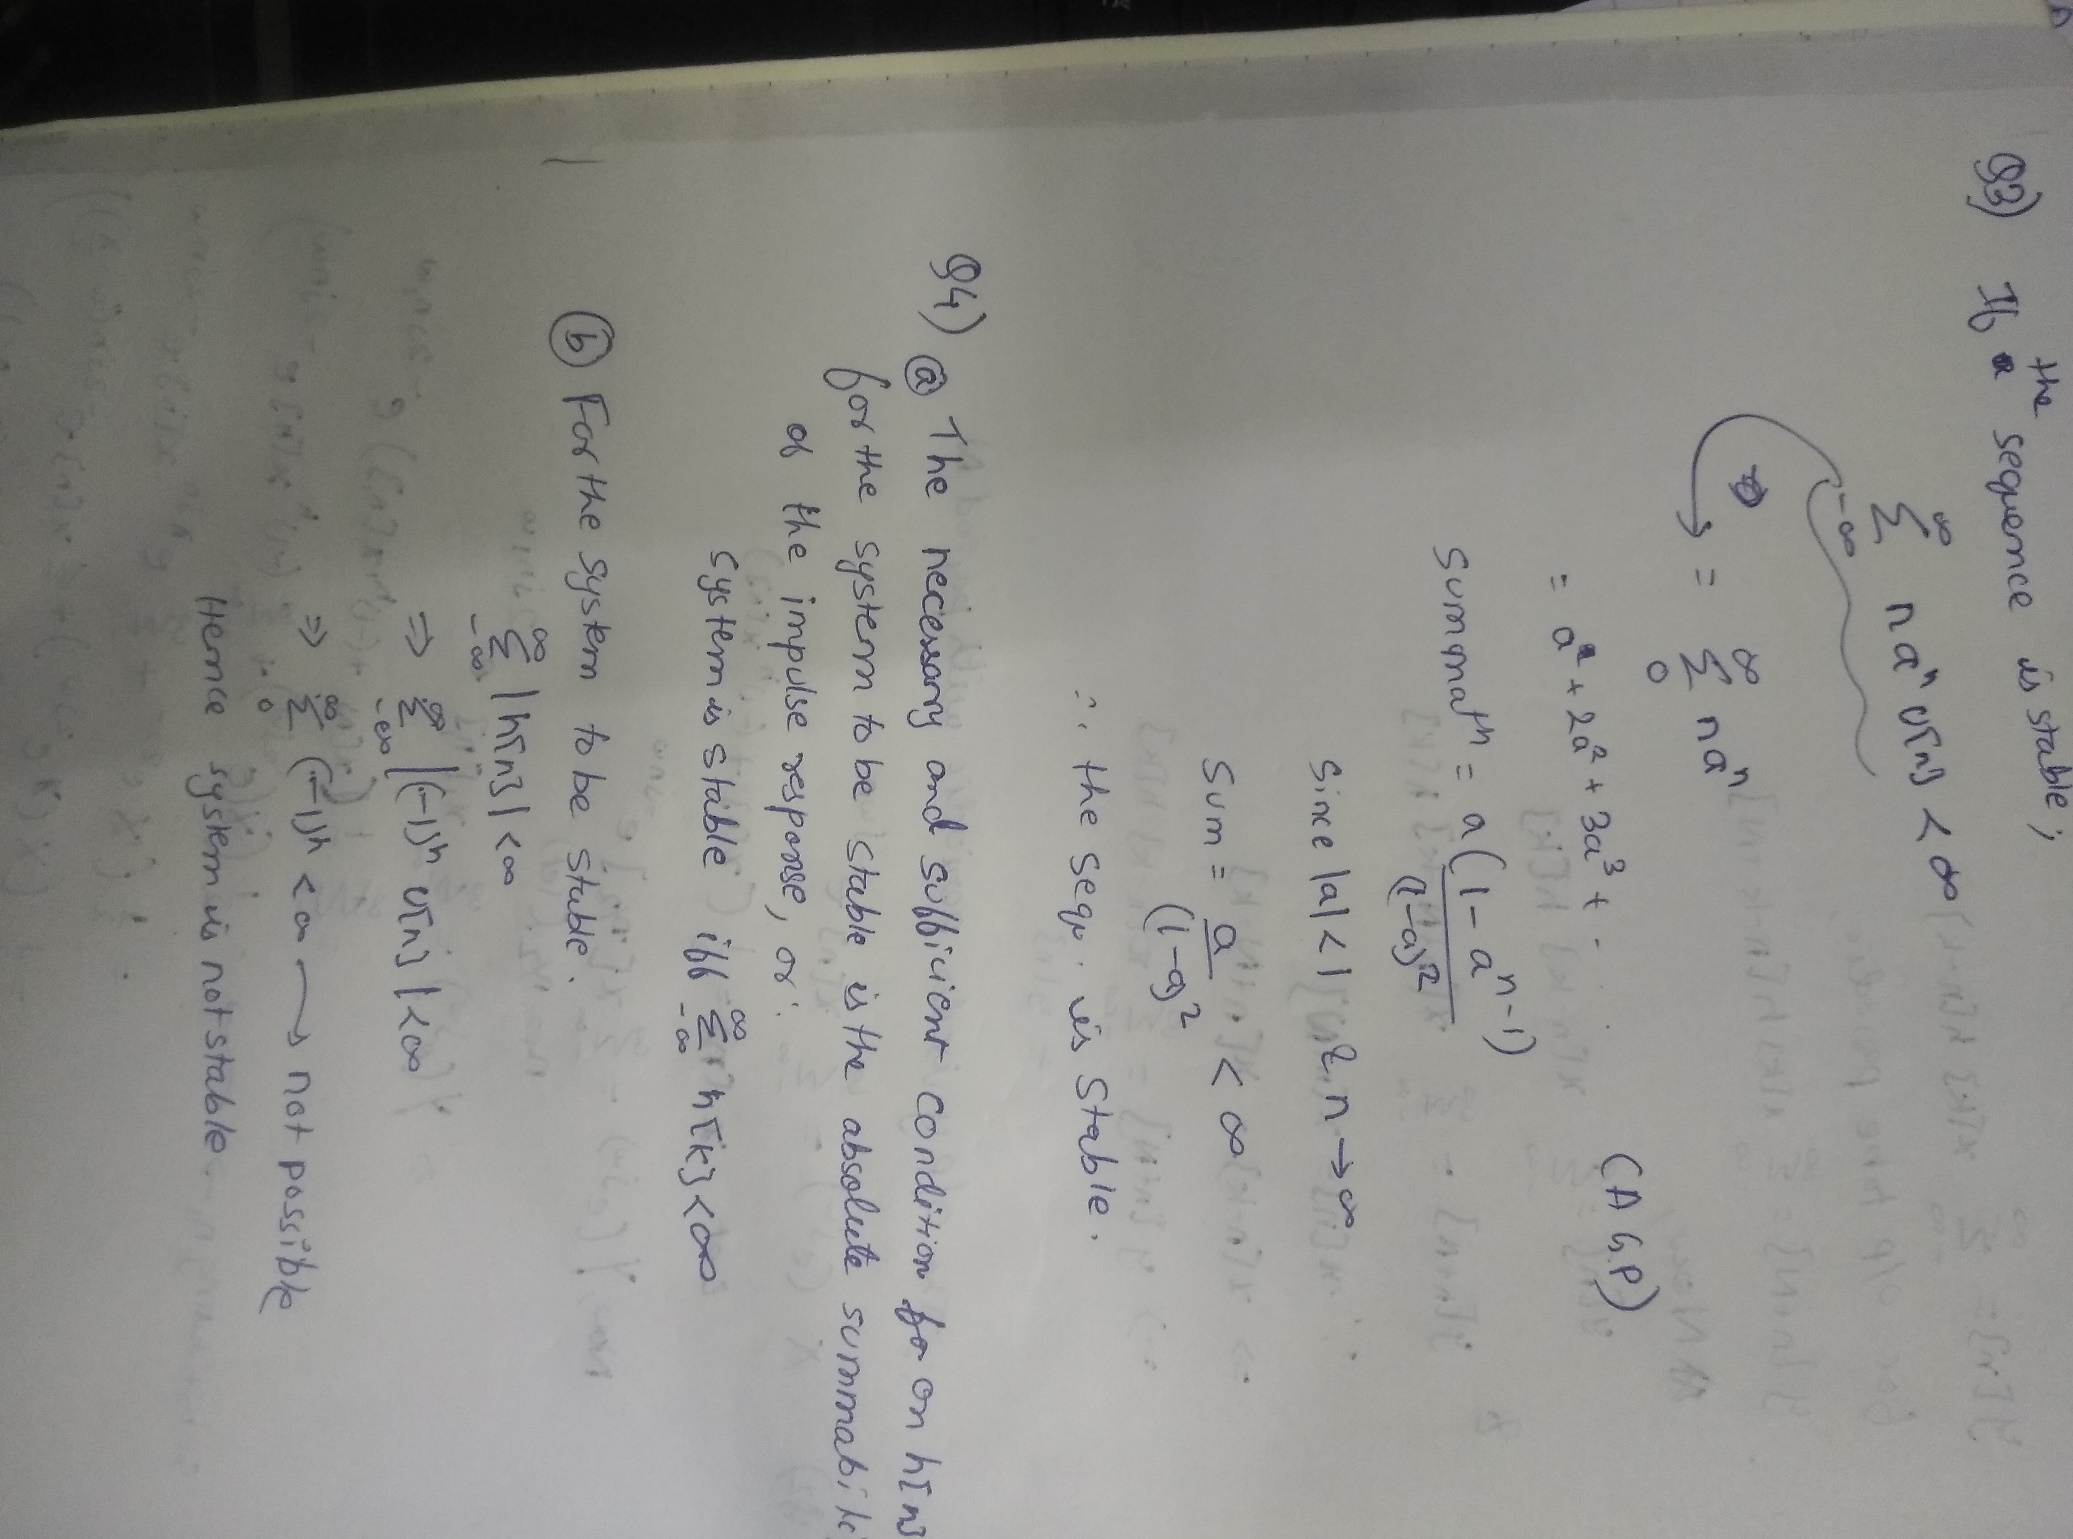 Q3) If the sequence is stable;
∞ Σ -∞ na^n u[n] < ∞
= ∞ Σ 0 na^n
= a + 2a² + 3a³ + . . . (A G.P)
summatn = a(1-a^n-1) / (1-a)²
since |a|<1 & n→∞
Sum = a / (1-a)² < ∞
∴ the sequ. is stable.
Q4) ⓐ The necessary and sufficient condition for on h[n]
for the system to be stable is the absolute summabil
of the impulse response, or:
system is stable iff ∞ Σ -∞ h[k] < ∞
ⓑ For the system to be stable.
∞ Σ -∞ |h[n]| < ∞
⇒ ∞ Σ -∞ |(-1)^n u[n]| < ∞
⇒ ∞ Σ 0 (-1)^n < ∞ → not possible
Hence system is not stable.